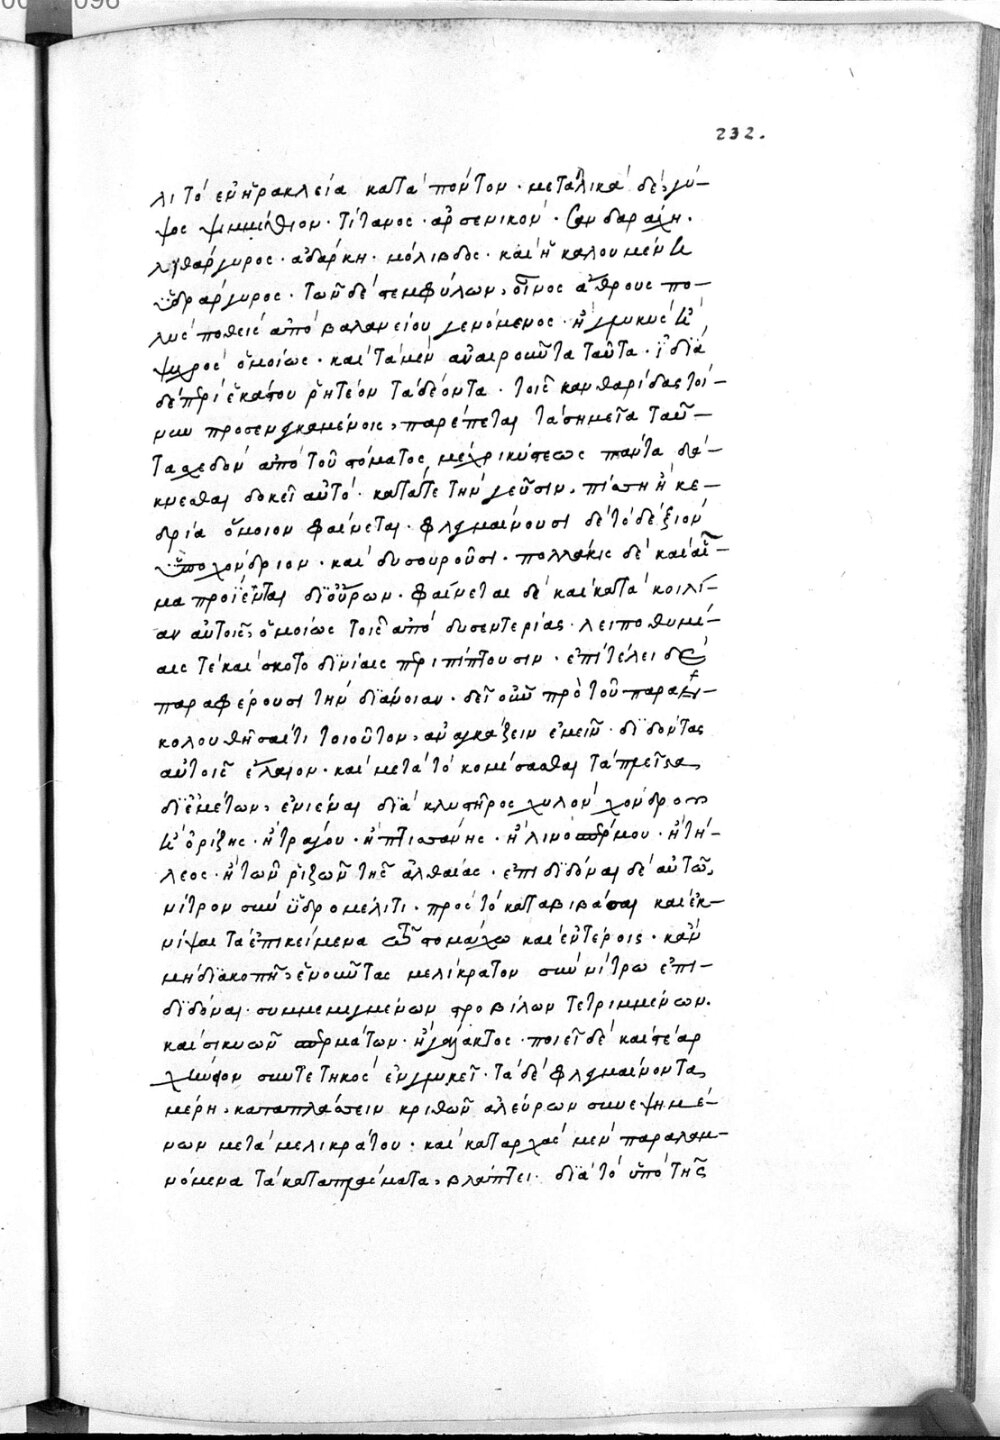 232.
λι τὸ ἐν ἡρακλεία κατὰ πόντον · μεταλικὰ δὲ, γύ-
ψος ψιμμίθιον · τίτανος · ἀρσενικόν · σανδαράχη ·
λυθάργυρος · ἀδάρκη · μόλιβδος · καὶ ἡ καλουμένη
ὑδράργυρος · τῶν δὲ στεμφύλων, οἶνος ἄθρους πο-
λὺς ποθεὶς ἀπὸ βαλανείου γενόμενος · ἢ γλυκὺς καὶ
ψυχρὸς ὁμοίως · καὶ τὰ μὲν ἀναιροῦντα ταῦτα · ἰδία
δὲ περὶ ἑκάστου ῥητέον τὰ δέοντα · τοῖς κανθαρίδας τοί-
νυν προσενεγκαμένοις, παρέπεται τὰ σημεῖα ταῦ-
τα σχεδὸν ἀπὸ τοῦ στόματος μέχρι κύστεως πάντα δά-
κνεσθαι δοκεῖ αὐτό · κατά τε τὴν γεῦσιν, πίσση ἢ κε-
δρία ὅμοιον φαίνεται · φλεγμαίνουσι δὲ τὸ δεξιὸν
ὑποχόνδριον · καὶ δυσουροῦσι · πολλάκις δὲ καὶ αἷ-
μα προϊένται δι οὔρων · φαίνεται δὲ καὶ κατὰ κοιλί-
αν αὐτοῖς, ὁμοίως τοῖς ἀπὸ δυσεντερίας · λειποθυμί-
αις τὲ καὶ σκοτοδινίαις περιπίπτουσιν · ἐπὶ τέλει δὲ
παραφέρουσι τὴν διάνοιαν · δεῖ οὖν πρὸ τοῦ παρακ-
κολουθῆσαί τι τοιοῦτον, ἀναγκάζειν ἐμεῖν · διδόντας
αὐτοῖς ἔλαιον · καὶ μετὰ τὸ κομίσασθαι τὰ πλεῖστα
δι ἐμέτων, ἐνιέναι διὰ κλυστῆρος χυλὸν χόνδρου
καὶ ὀρίζης · ἢ τράγου · ἢ πτισσάνης · ἢ λινοσπέρμου · ἢ τή-
λεος · ἢ τῶν ῥιζῶν τῆς ἀλθαίας · ἐπιδιδόναι δὲ αὐτῶ,
νίτρον σὺν ὑδρομέλιτι · πρὸς τὸ καταβιβάσαι καὶ ἐκ-
νίψαι τὰ ἐπικείμενα τῶ στομάχω καὶ ἐντέροις · κἂν
μὴ διακοπῆ, ἐνοῦντας μελίκρατον σὺν νίτρω ἐπι-
διδόναι · συμμεμιγμένων στροβίλων τετριμμένων ·
καὶ σικυῶν σπερμάτων · ἢ γάλακτος · ποιεῖ δὲ καὶ στέαρ
χήνειον συντετηκὸς ἐν γλυκεῖ · τὰ δὲ φλεγμαίνοντα
μέρη, καταπλάσσειν κριθῶν ἀλεύρων συνεψημέ-
νων μετὰ μελικράτου · καὶ καταρχὰς μὲν παραλαμ-
νόμενα τὰ καταπλάσματα, βλάπτει · διὰ τὸ ὑπὸ τῆς